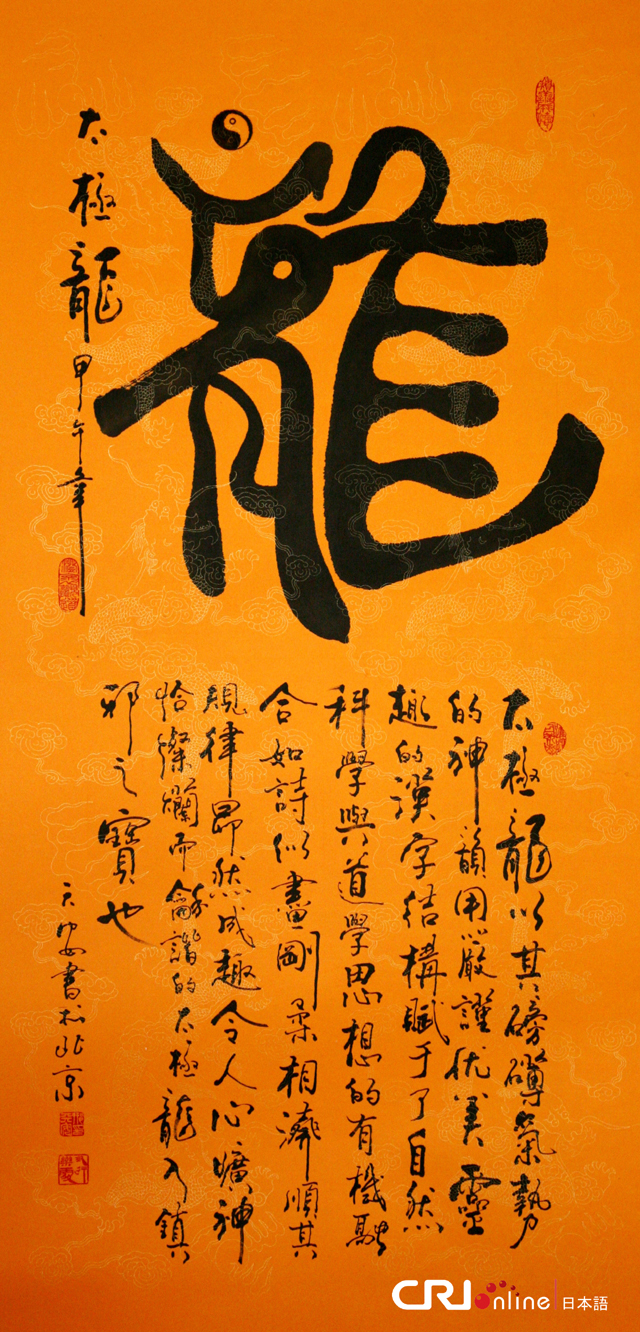 龍
太極龍 甲午年
太極龍以其磅礴氣勢
的神韻用嚴謹优美靈
趣的漢字结構賦于了自然
科學與道學思想的有機融
合如詩似畫剛柔相濟順其
規律昂然成趣令人心曠神
怡燦爛而龢諧的太極龍乃鎮
邪之寶也
書於北京
CRI online 日本語